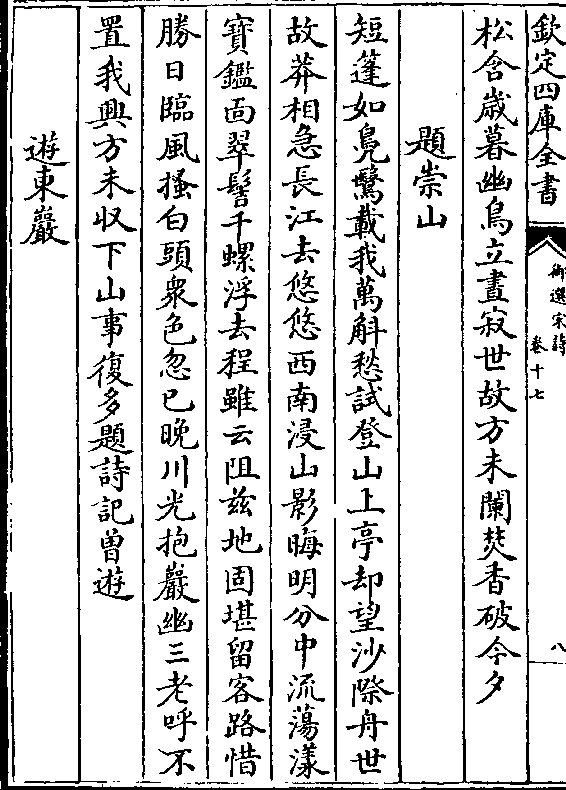 欽定四庫全書
御選宋詩
卷十七
八
松含歳暮幽鳥立晝寂世故方未闌焚香破今夕
題崇山
短蓬如鳬鷖載我萬斛愁試登山上亭却望沙際舟世
故莽相急長江去悠悠西南浸山影晦明分中流蕩漾
寶鑑面翠髻千螺浮去程雖云阻兹地固堪留客路惜
勝日臨風搔白頭衆色忽已晚川光抱巖幽三老呼不
置我興方未収下山事復多題詩記曽遊
遊東巖